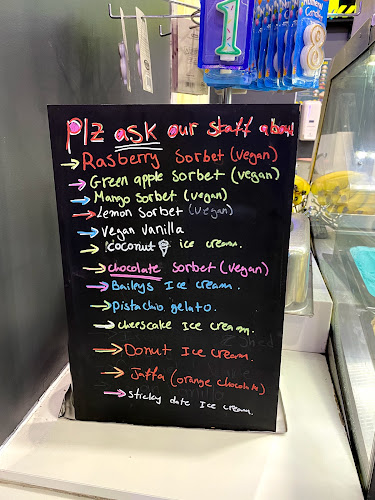 Plz ask our staff about
Rasberry Sorbet (vegan)
Green apple sorbet (vegan)
Mango sorbet (vegan)
Lemon Sorbet (vegan)
Vegan vanilla
Coconut ice cream.
chocolate sorbet (vegan)
Baileys Ice cream.
Pistachio gelato.
cheescake Ice cream.
Donut Ice cream.
Jaffa (orange chocolate)
sticky date Ice cream.
1
8